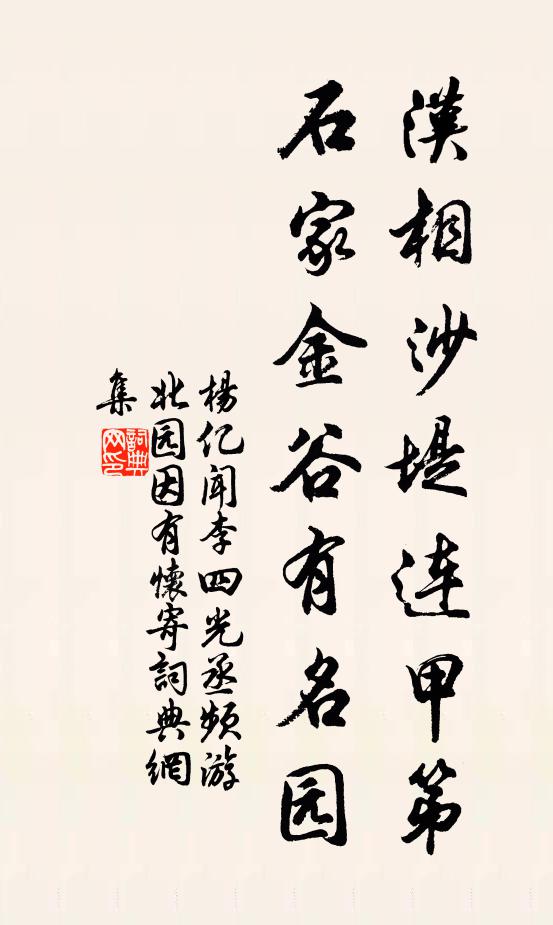 漢相沙堤连甲第
石家金谷有名园
楊亿闻李四光丞频游
北园因有懷寄詞典網
集
詞典
网印